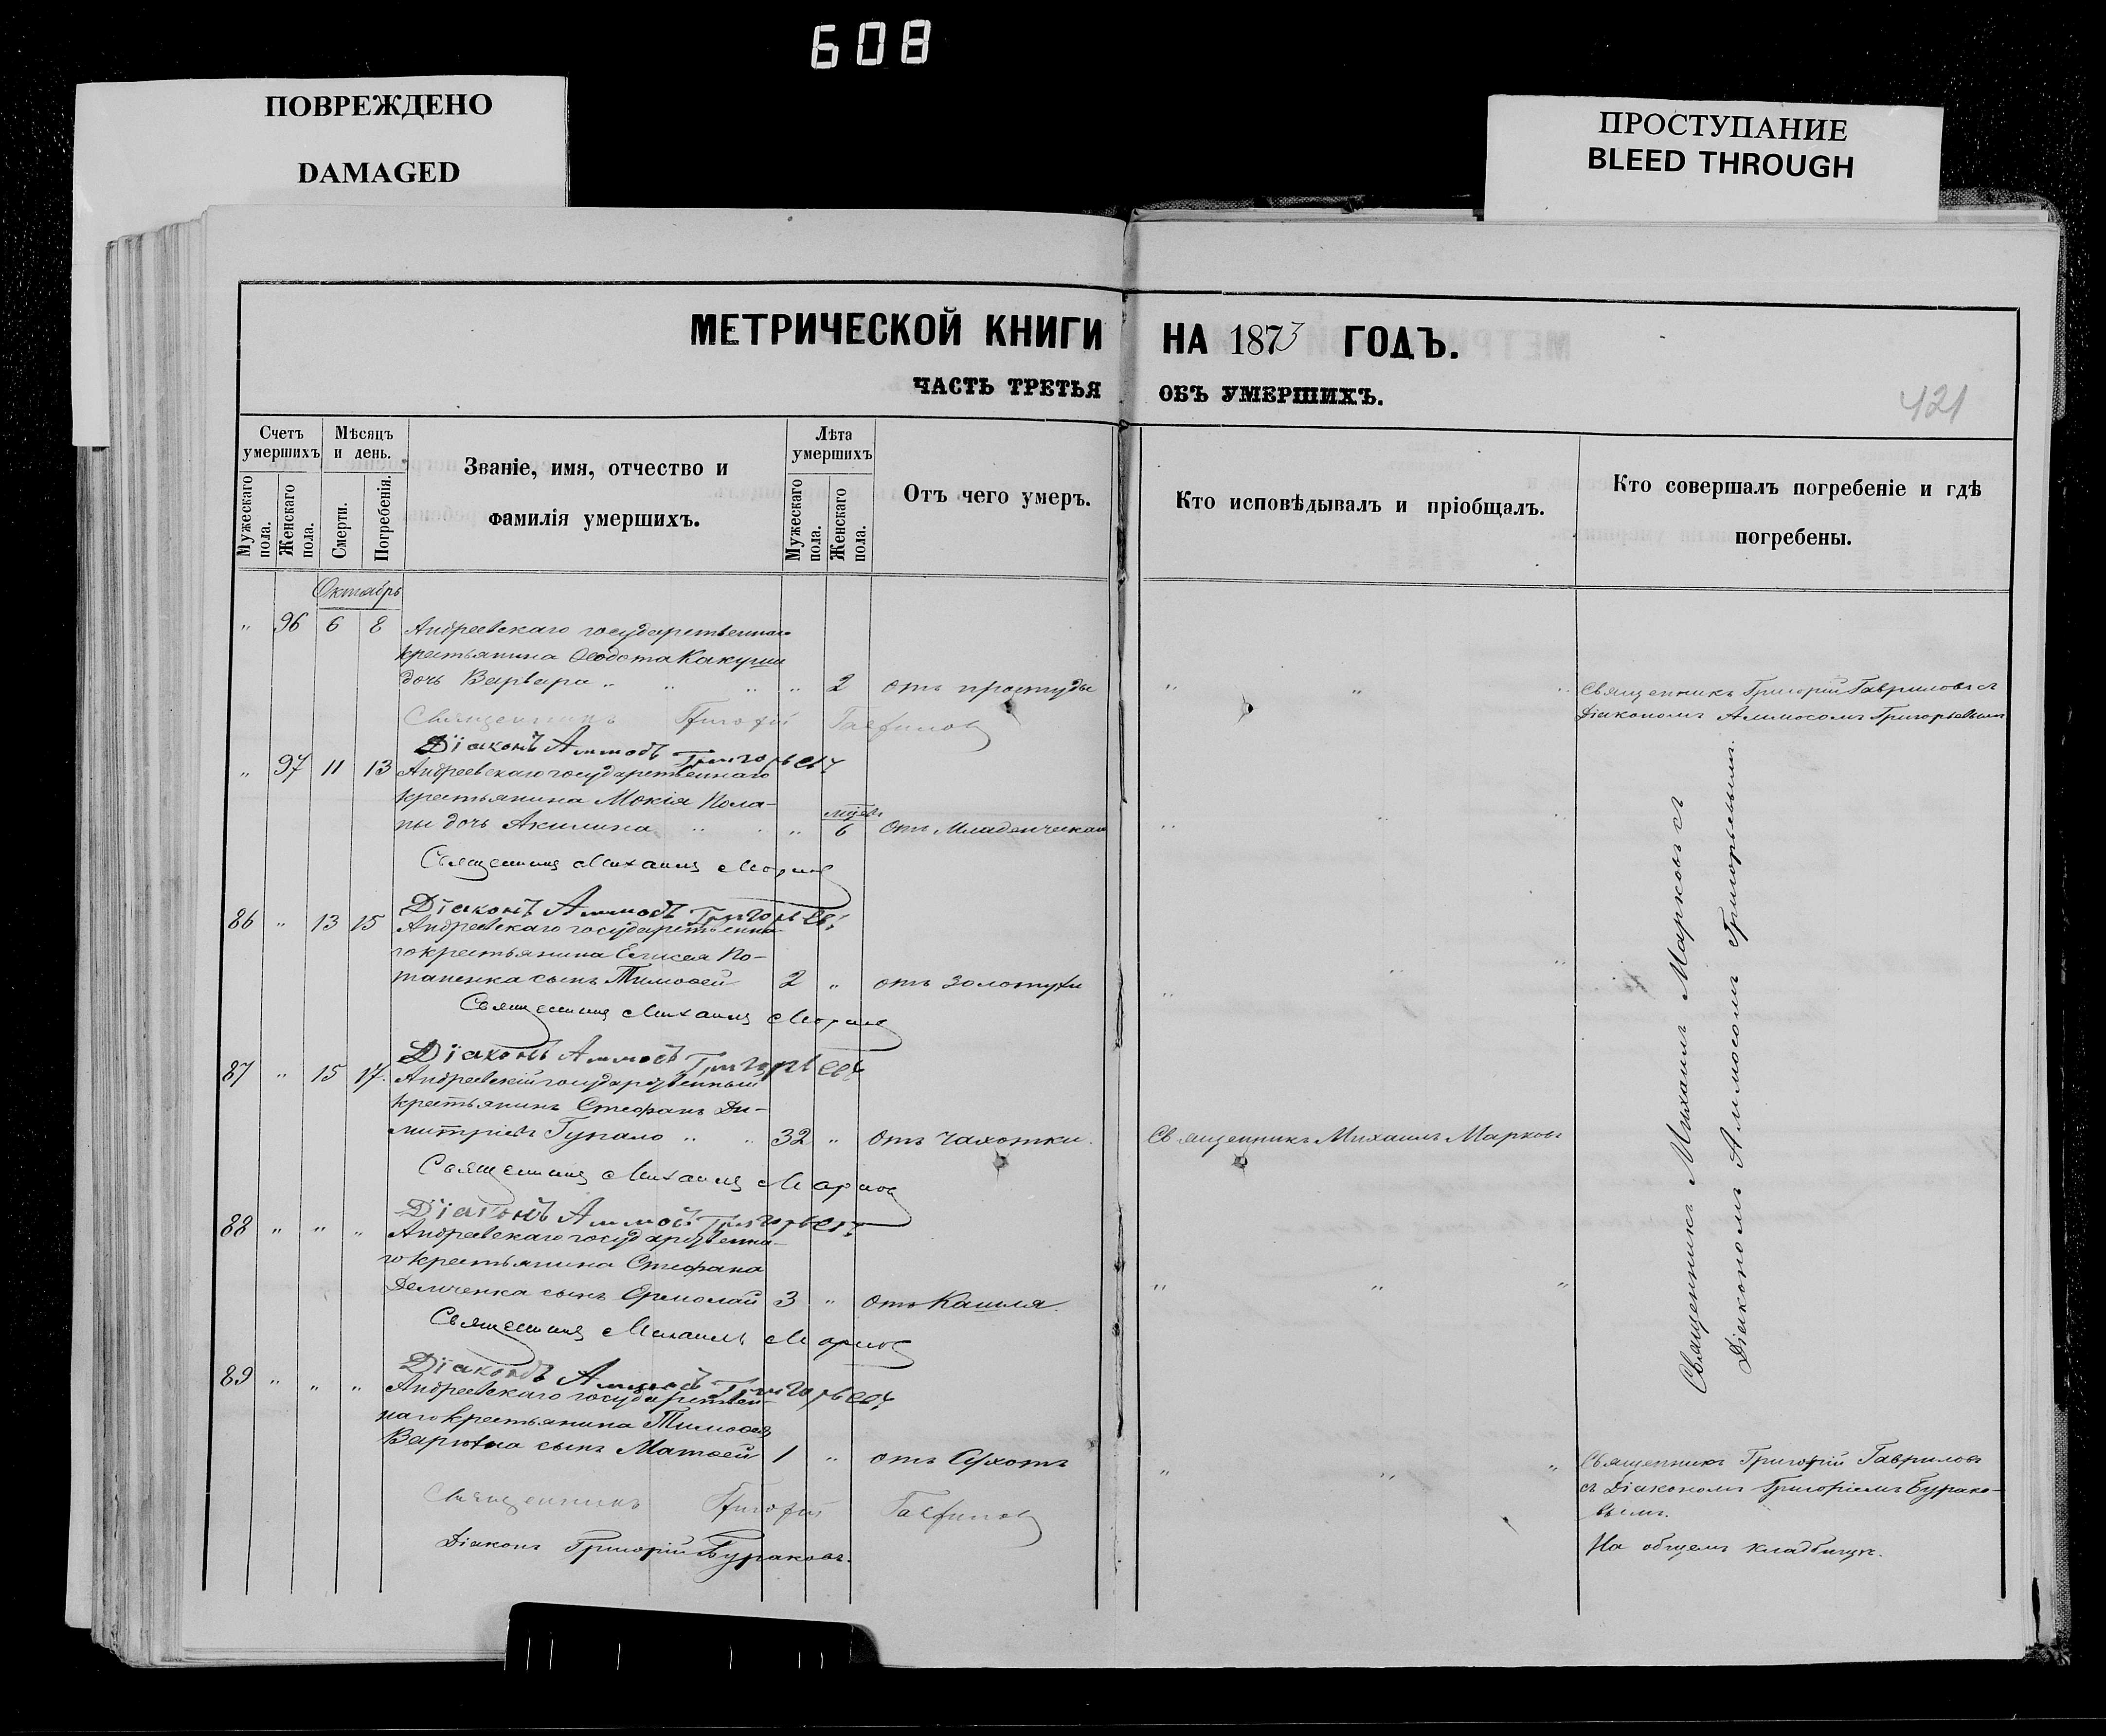 608
ПОВРЕЖДЕНО
DAMAGED
ПРОСТУПАНИЕ
BLEED THROUGH
МЕТРИЧЕСКОЙ КНИГИ НА 1873 ГОДЪ.
ЧАСТЬ ТРЕТЬЯ ОБЪ УМЕРШИХЪ.
421
Счетъ умершихъ
Мужескаго пола.
Женскаго пола.
Мѣсяцъ и день.
Смерти.
Погребенія.
Званіе, имя, отчество и
фамилія умершихъ.
Лѣта умершихъ
Мужескаго пола.
Женскаго пола.
Отъ чего умеръ.
Кто исповѣдывалъ и пріобщалъ.
Кто совершалъ погребеніе и гдѣ
погребены.
Октябрь
" 96 6 8 Андреевскаго государственнаго
крестьянина Ѳеодота
дочь Варвара " " " " 2 отъ простуды " " " Священникъ Григорій Гавриловъ съ
Діакономъ Аммосомъ Григорьевымъ
Священникъ Григорій Гавриловъ
Діаконъ Аммосъ Григорьевъ
" 97 11 13 Андреевскаго государственнаго
крестьянина Мокія Пола-
пы дочь Акилина " " " 6 отъ Младенческой " " "
Священникъ Михаилъ Марковъ
Діаконъ Аммосъ Григорьевъ
86 " 13 15 Андреевскаго государственна-
го крестьянина Елисея По-
тапенка сынъ Тимоѳей 2 " отъ золотухи " " "
Священникъ Михаилъ Марковъ
Діаконъ Аммосъ Григорьевъ
87 " 15 17. Андреевскій государственный
крестьянинъ Стефанъ Ди-
митріевъ Гупало " " 32 " отъ чахотки. Священникъ Михаилъ Марковъ
Священникъ Михаилъ Марковъ
Діаконъ Аммосъ Григорьевъ
88 " " " Андреевскаго государственна-
го крестьянина Стефана
Демченка сынъ Ермолай 3 " отъ Кашля. " " "
Священникъ Михаилъ Марковъ
Діаконъ Аммосъ Григорьевъ
Священникъ Михаилъ Марковъ съ
Діакономъ Аммосомъ Григорьевымъ.
89 " " " Андреевскаго государствен-
наго крестьянина Тимоѳея
сынъ Матѳей 1 " отъ Сухотъ " " " Священникъ Григорій Гавриловъ
съ Діакономъ Григоріемъ Бурако-
вымъ.
На общемъ кладбищѣ.
Священникъ Григорій Гавриловъ
Діаконъ Григорій Бураковъ.